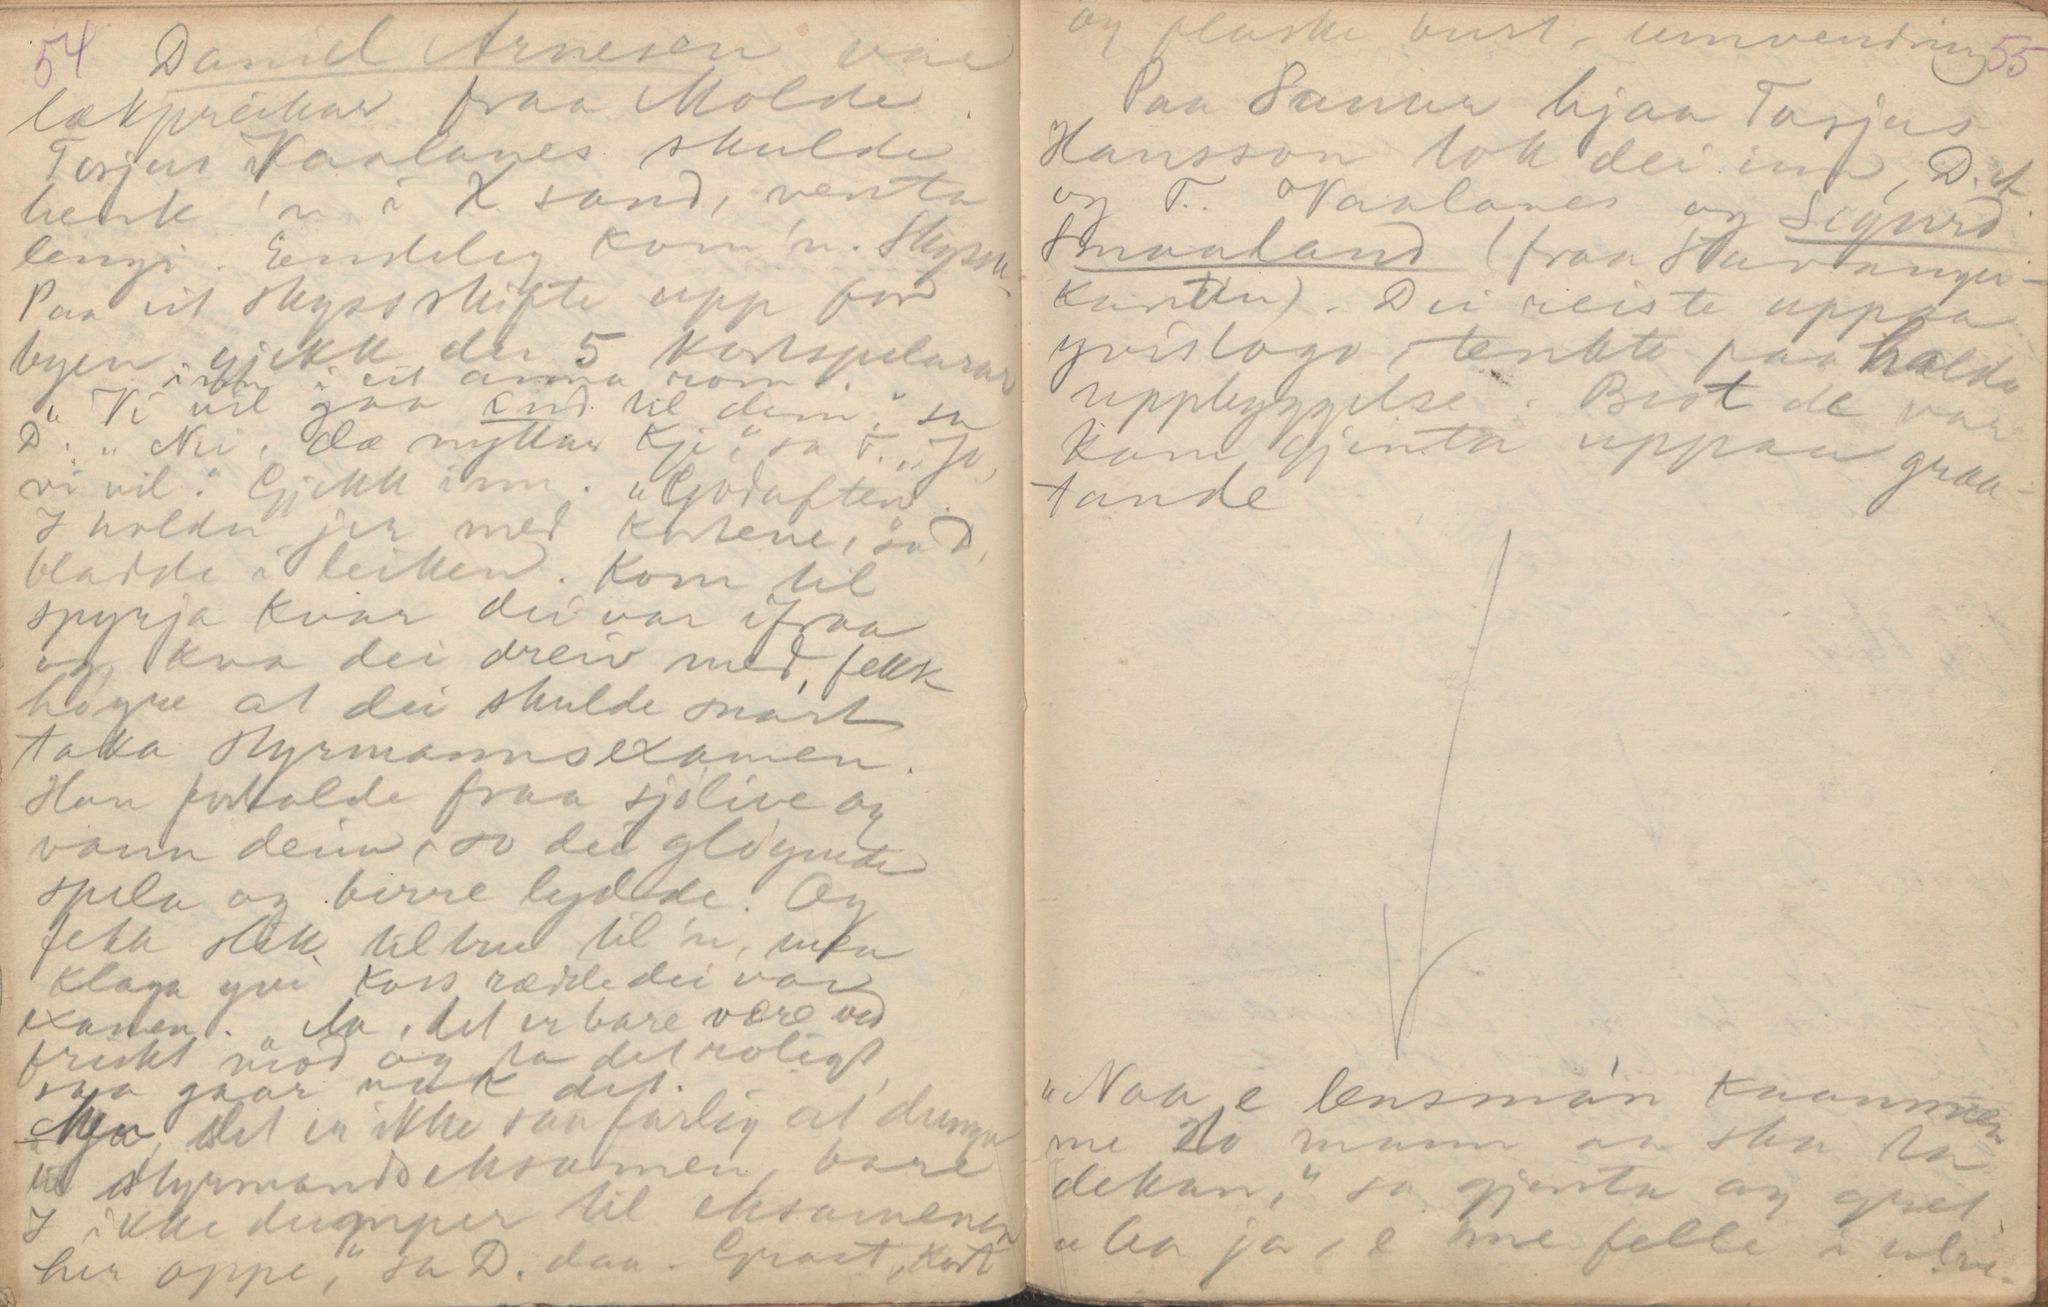 54
Daniel Arnesen var
lækpreikar fraa Molde.
Torjus Vaalanes skulde
henk 'n i K sand, venta
lengi. Endeleg kom 'n.
Paa eit skyssskifte upp for
byen gjekk dei 5 kortspelarar
inn i eit anna rom.
"Vi vil gaa ind til dem," sa
D. "Nei, dæ nyttar kje," sa T. "Jo,
vi vil." Gjekk inn. "Godaften.
I holder jer med kortene," sa D,
bladde i leiken. Kom til
spyrja kvar dei var ifraa
og kva dei dreiv med, fekk
høyre at dei skulde snart
taka styrmannsexamen.
Han fortalde fraa sjølive og
vann deim, so dei gløymde
spela og berre lydde. Og
fekk slik tiltru til 'n,
klaga yvi koss rædde dei var
examen. "Aa, det er bare være ved
friskt mod og ta det roligt,
saa gaar nok det.
Mja, det er ikke saa farlig at dumpe
til styrmandseksamen, bare
I ikke dumper til eksamenen
her oppe," sa D. daa. Graat, kort
55
og flaske burt, umvending
Paa Sannes hjaa Torjus
Hansson tok dei inn, D. A.
og T. Vaalanes og Sigurd
Smaaland (fraa Stavanger-
kanten). Dei reiste uppaa
yvislogo, tenkte paa halda
uppbyggjelse. Best de var
kom gjenta uppaa graa-
tande
"Naa e lensmàn kaammen
me to mann aa ska ta
dekan," sa gjenta og gret
"Aa ja, e me felle i